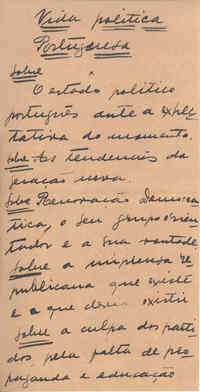 Vida politica
Portuguesa
Sobre
O estado politico
português ante a expec-
tativa do momento.
Sobre As tendencias da
geração nova.
Sobre Renovação Democra-
tica, o seu grupo orien-
tador e a sua vontade
Sobre a imprensa re-
publicana que existe
e a que devia existir
Sobre a culpa dos parti-
dos pela falta de pro-
paganda e educação